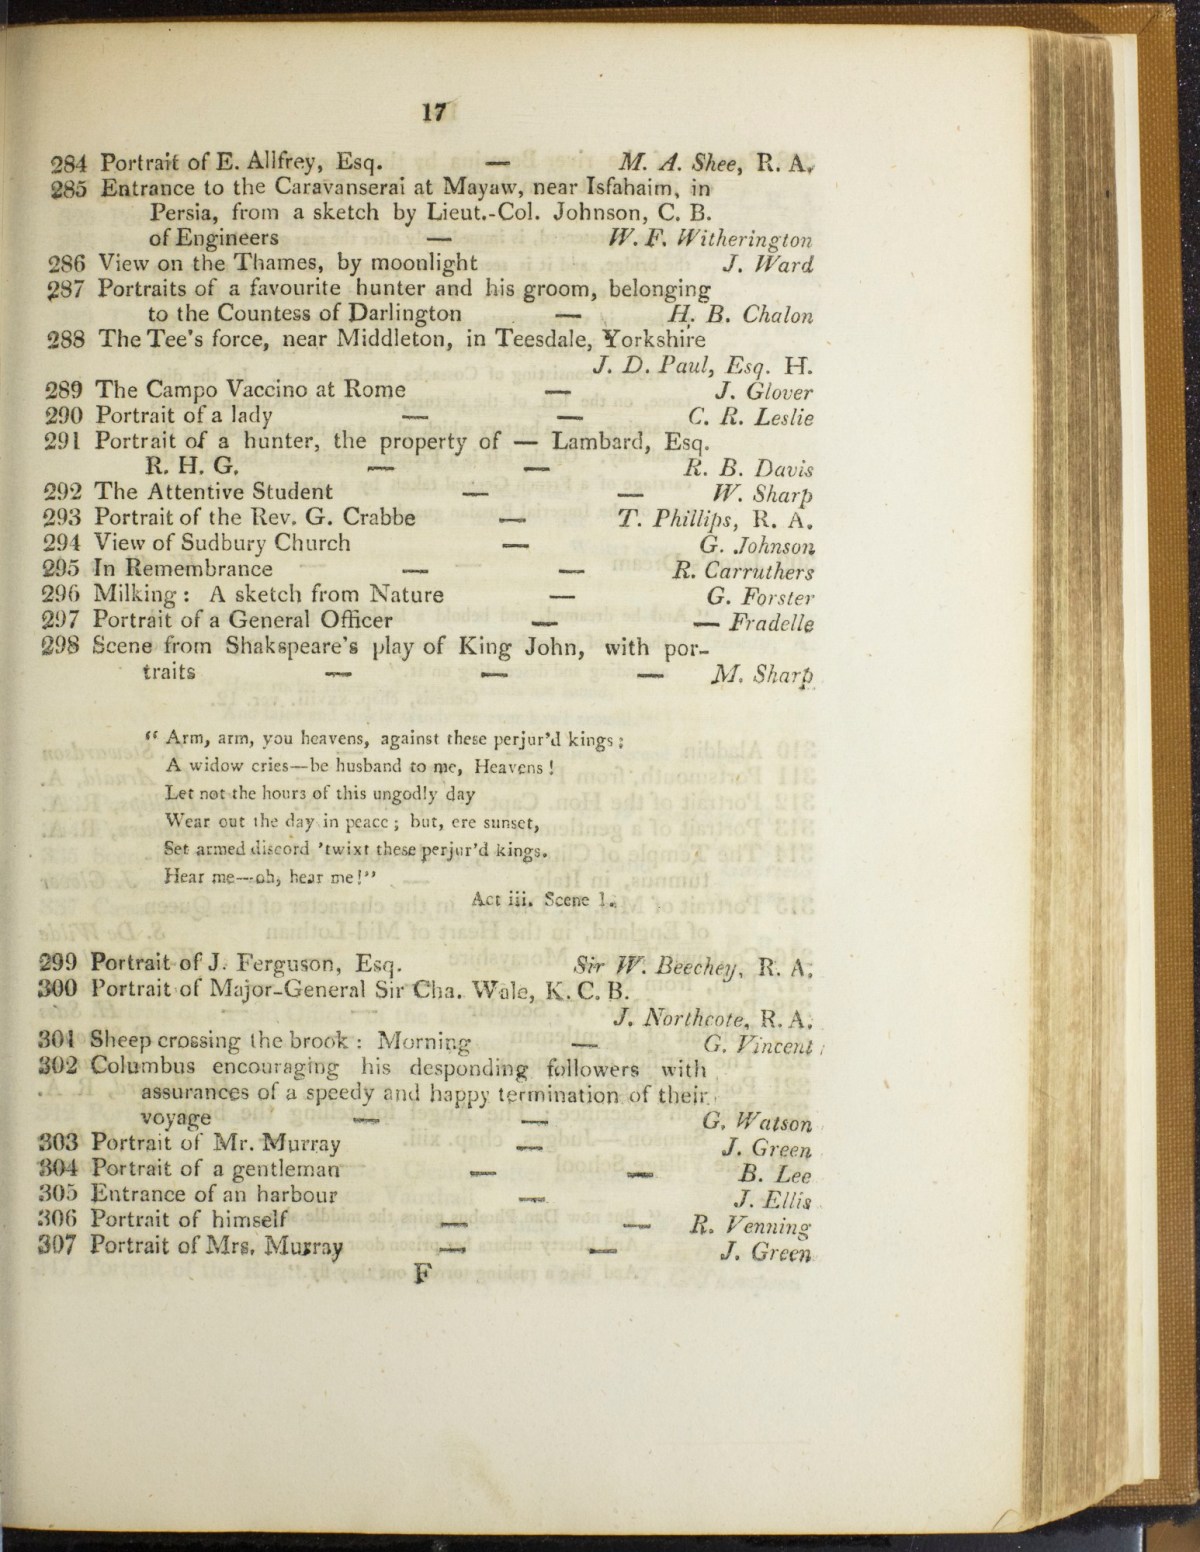 17
284 Portrait of E. Allfrey, Esq. — M. A. Shee, R. A.
285 Entrance to the Caravanserai at Mayaw, near Isfahaim, in
Persia, from a sketch by Lieut.-Col. Johnson, C. B.
of Engineers — W. F. Witherington
286 View on the Thames, by moonlight J. Ward
287 Portraits of a favourite hunter and his groom, belonging
to the Countess of Darlington — H. B. Chalon
288 The Tee's force, near Middleton, in Teesdale, Yorkshire
J. D. Paul, Esq. H.
289 The Campo Vaccino at Rome — J. Glover
290 Portrait of a lady — — C. R. Leslie
291 Portrait of a hunter, the property of — Lambard, Esq.
R. H. G. — — R. B. Davis
292 The Attentive Student — — W. Sharp
293 Portrait of the Rev. G. Crabbe — T. Phillips, R. A.
294 View of Sudbury Church — G. Johnson
295 In Remembrance — — R. Carruthers
296 Milking: A sketch from Nature — G. Forster
297 Portrait of a General Officer — — Fradelle
298 Scene from Shakspeare's play of King John, with por-
traits — — — M. Sharp
“ Arm, arm, you heavens, against these perjur'd kings;
A widow cries—be husband to me, Heavens!
Let not the hours of this ungodly day
Wear out the day in peace; but, ere sunset,
Set armed discord 'twixt these perjur'd kings.
Hear me—oh, hear me!”
Act iii. Scene 1.
299 Portrait of J. Ferguson, Esq. Sir W. Beechey, R. A.
300 Portrait of Major-General Sir Cha. Wale, K. C. B.
J. Northcote, R. A.
301 Sheep crossing the brook: Morning — G. Vincent
302 Columbus encouraging his desponding followers with
assurances of a speedy and happy termination of their
voyage — — G. Watson
303 Portrait of Mr. Murray — J. Green
304 Portrait of a gentleman — — B. Lee
305 Entrance of an harbour — J. Ellis
306 Portrait of himself — — R. Venning
307 Portrait of Mrs. Murray — — J. Green
F